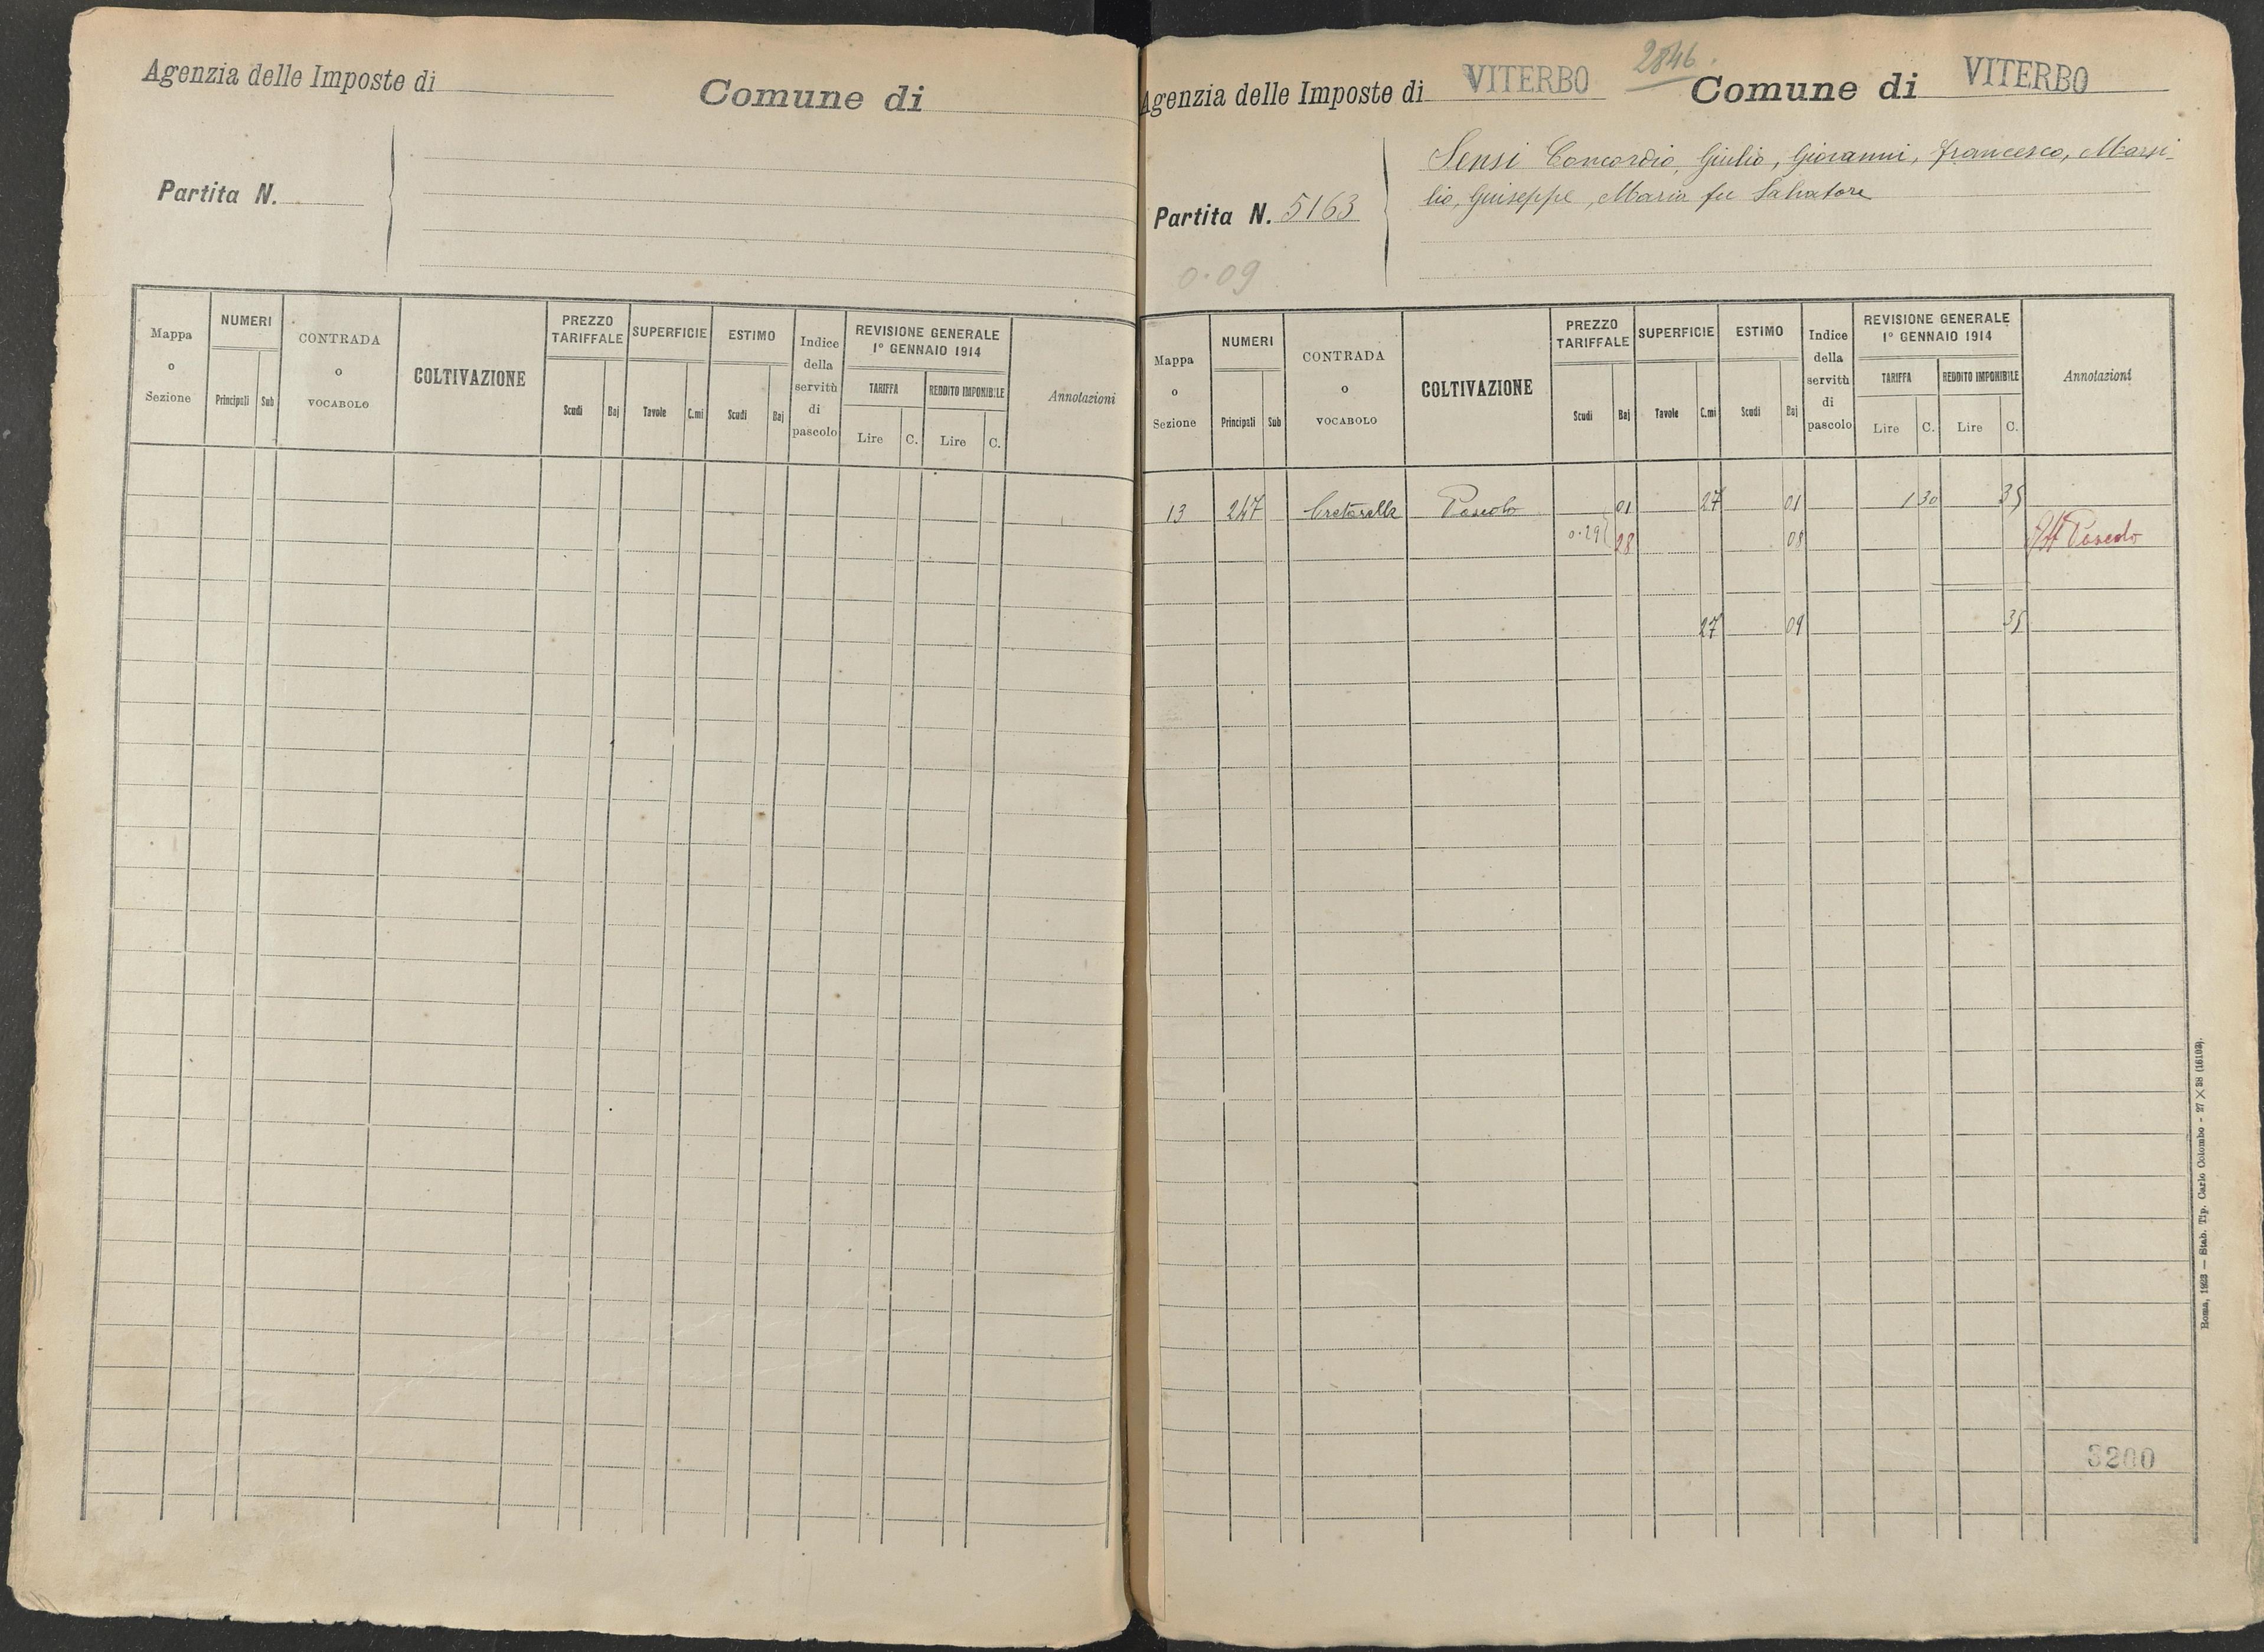 Agenzia delle Imposte di
Comune di
Partita N.
Mappa o Sezione
NUMERI
Principali Sub
CONTRADA o VOCABOLO
COLTIVAZIONE
PREZZO TARIFFALE
Scudi Baj
SUPERFICIE
Tavole C.mi
ESTIMO
Scudi Baj
Indice della servitù di pascolo
REVISIONE GENERALE
1° GENNAIO 1914
TARIFFA
Lire C.
REDDITO IMPONIBILE
Lire C.
Annotazioni
2846.
Agenzia delle Imposte di VITERBO
Comune di VITERBO
Sensi Concordio, Giulio, Giovanni, Francesco, Marsi-
lio, Giuseppe, Maria fu Salvatore
Partita N. 5163
0.09
Mappa o Sezione
NUMERI
Principali Sub
CONTRADA o VOCABOLO
COLTIVAZIONE
PREZZO TARIFFALE
Scudi Baj
SUPERFICIE
Tavole C.mi
ESTIMO
Scudi Baj
Indice della servitù di pascolo
REVISIONE GENERALE
1° GENNAIO 1914
TARIFFA
Lire C.
REDDITO IMPONIBILE
Lire C.
Annotazioni
13 247 Cretarella Pascolo 01 27 01 1 30 35
0.29 28 08 Pascolo
27 09 35
3200
Roma, 1923 — Stab. Tip. Carlo Colombo - 27 X 38 (16193).